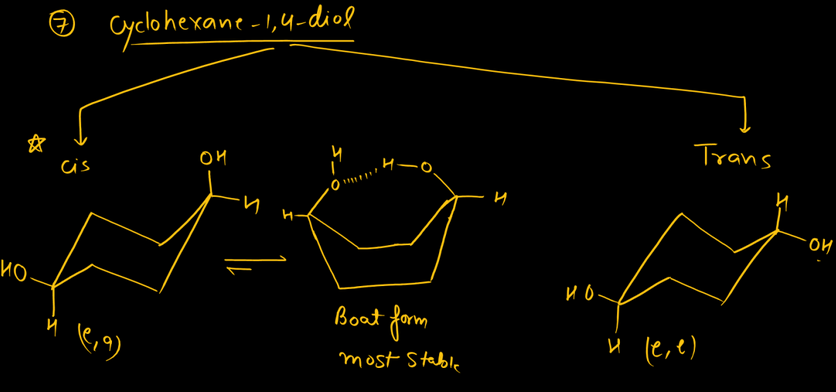 ⑦ Cyclohexane-1,4-diol
☆ cis
Trans
OH
H
HO
H
(e,a)
H
O
H-O
H
H
Boat form
most stable
H
OH
HO
H
(e,e)